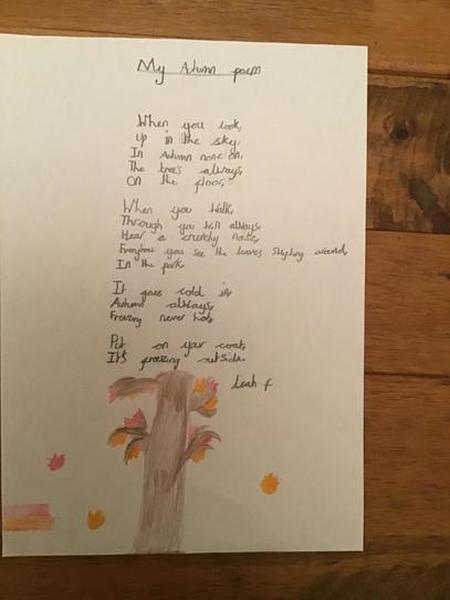 My Autumn poem
When you look,
Up in the sky,
In Autumn none on,
The trees always,
On the floor,
When you walk,
Through you will always,
Hear a crunchy noise,
you see the leaves around,
In the park
It goes cold in
Autumn always,
Freezing never hot,
Put on your coat,
It's freezing outside.
Leah F